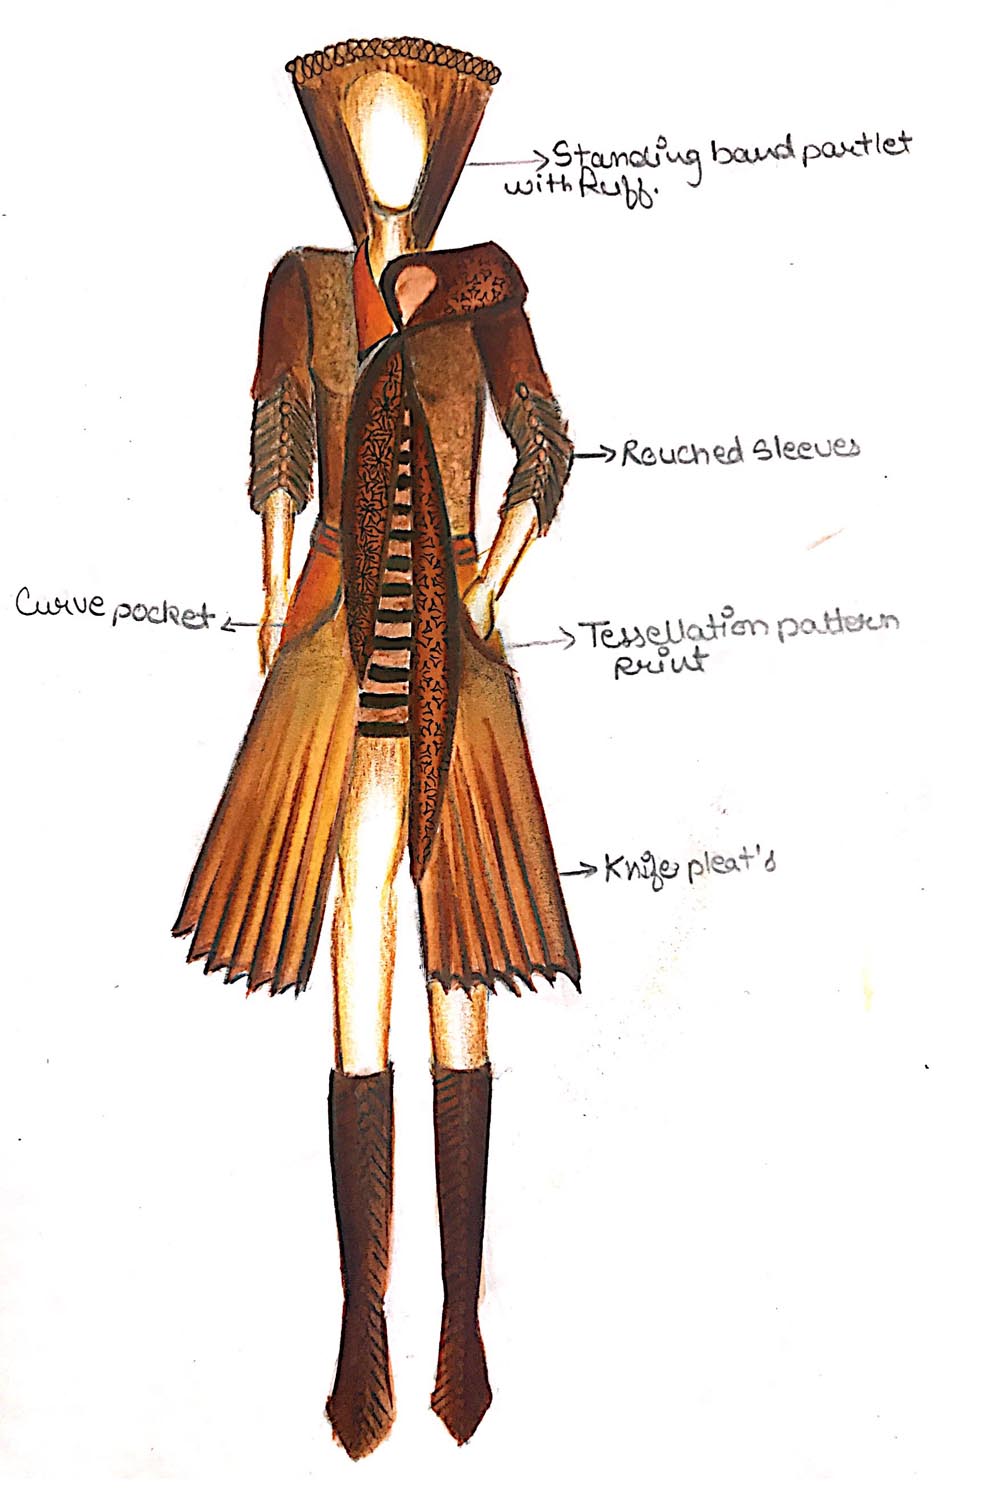 Standing band partlet
with Ruff.
Rouched Sleeves
Curve pocket
Tessellation pattern
print
Knife pleat's